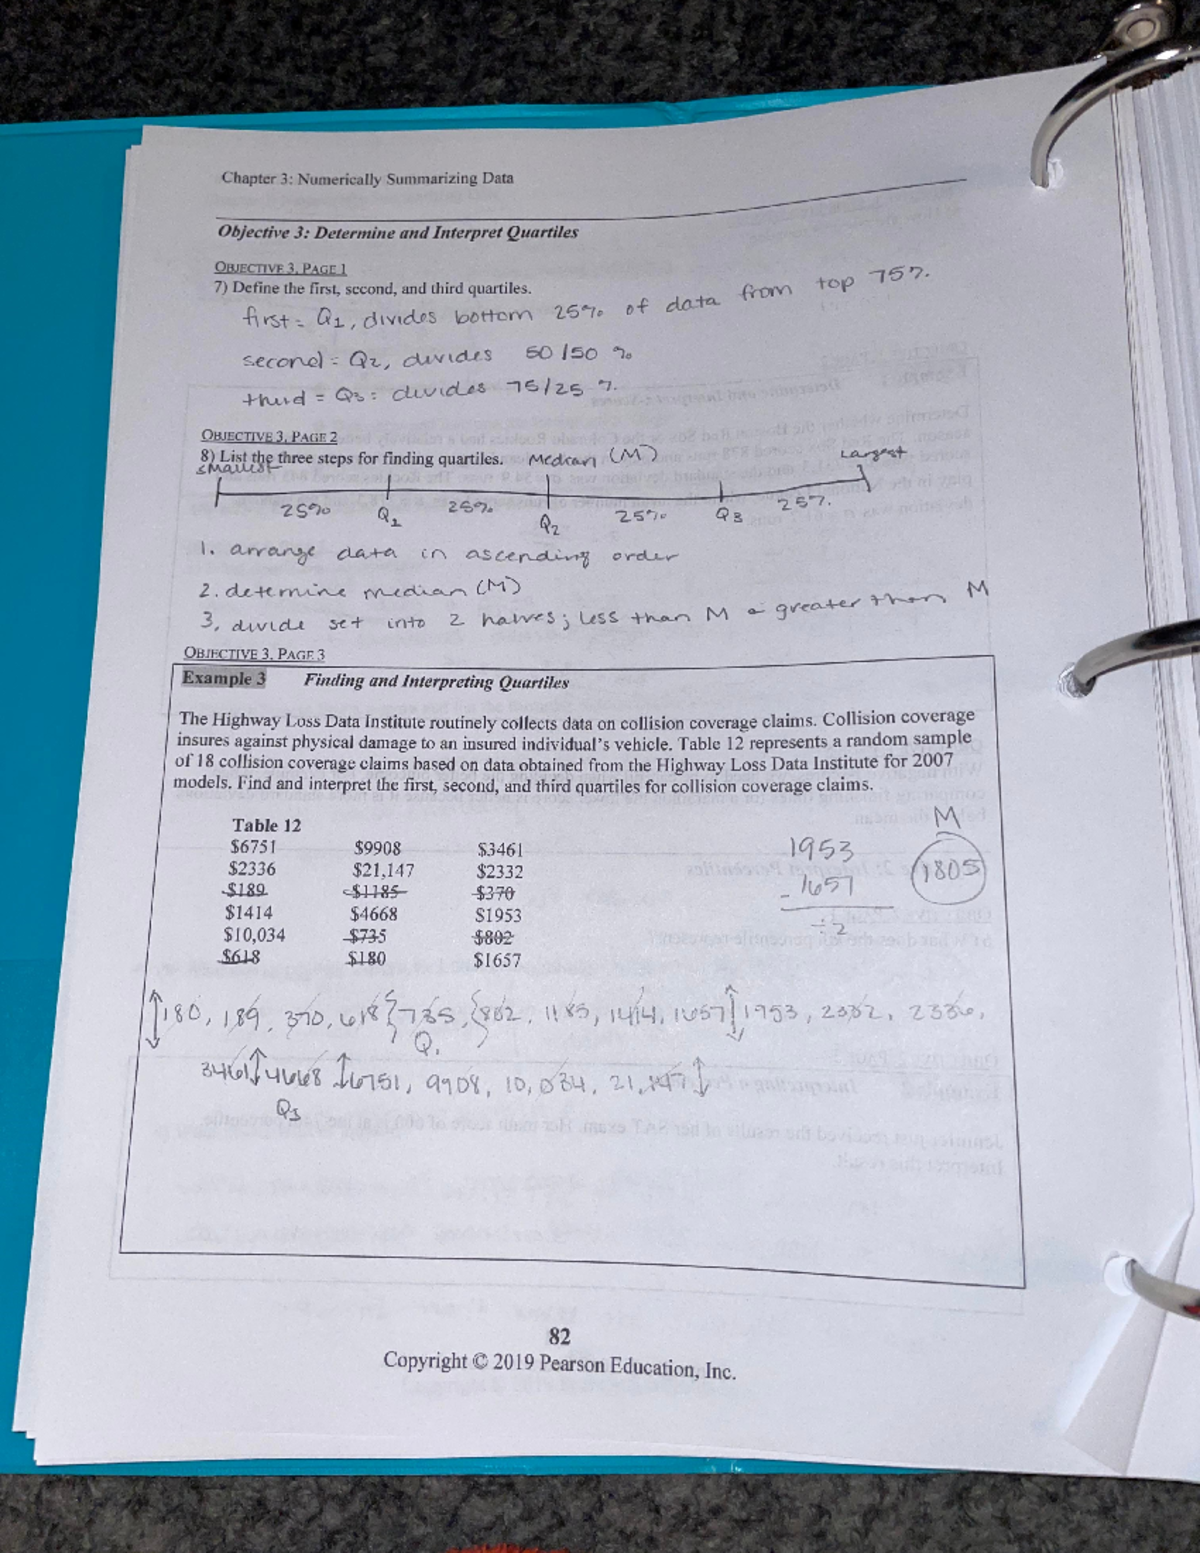 Chapter 3: Numerically Summarizing Data
Objective 3: Determine and Interpret Quartiles
OBJECTIVE 3, PAGE 1
7) Define the first, second, and third quartiles.
first = Q1, divides bottom 25% of data from top 75%.
second = Q2, divides 50/50 %
third = Q3: divides 75/25 %.
OBJECTIVE 3, PAGE 2
8) List the three steps for finding quartiles. Median (M)
smallest Largest
25% Q1 25% Q2 25% Q3 25%.
1. arrange data in ascending order
2. determine median (M)
3. divide set into 2 halves; less than M & greater than M
OBJECTIVE 3, PAGE 3
Example 3 Finding and Interpreting Quartiles
The Highway Loss Data Institute routinely collects data on collision coverage claims. Collision coverage
insures against physical damage to an insured individual's vehicle. Table 12 represents a random sample
of 18 collision coverage claims based on data obtained from the Highway Loss Data Institute for 2007
models. Find and interpret the first, second, and third quartiles for collision coverage claims.
Table 12
$6751 $9908 $3461
$2336 $21,147 $2332
$189 $1185 $370
$1414 $4668 $1953
$10,034 $735 $802
$618 $180 $1657
M
1953
- 1657
÷ 2
1805
180, 189, 370, 618 735, 802, 1185, 1414, 1657 1953, 2332, 2336,
Q1
3461 4668 6751, 9908, 10,034, 21,147
Q3
82
Copyright © 2019 Pearson Education, Inc.